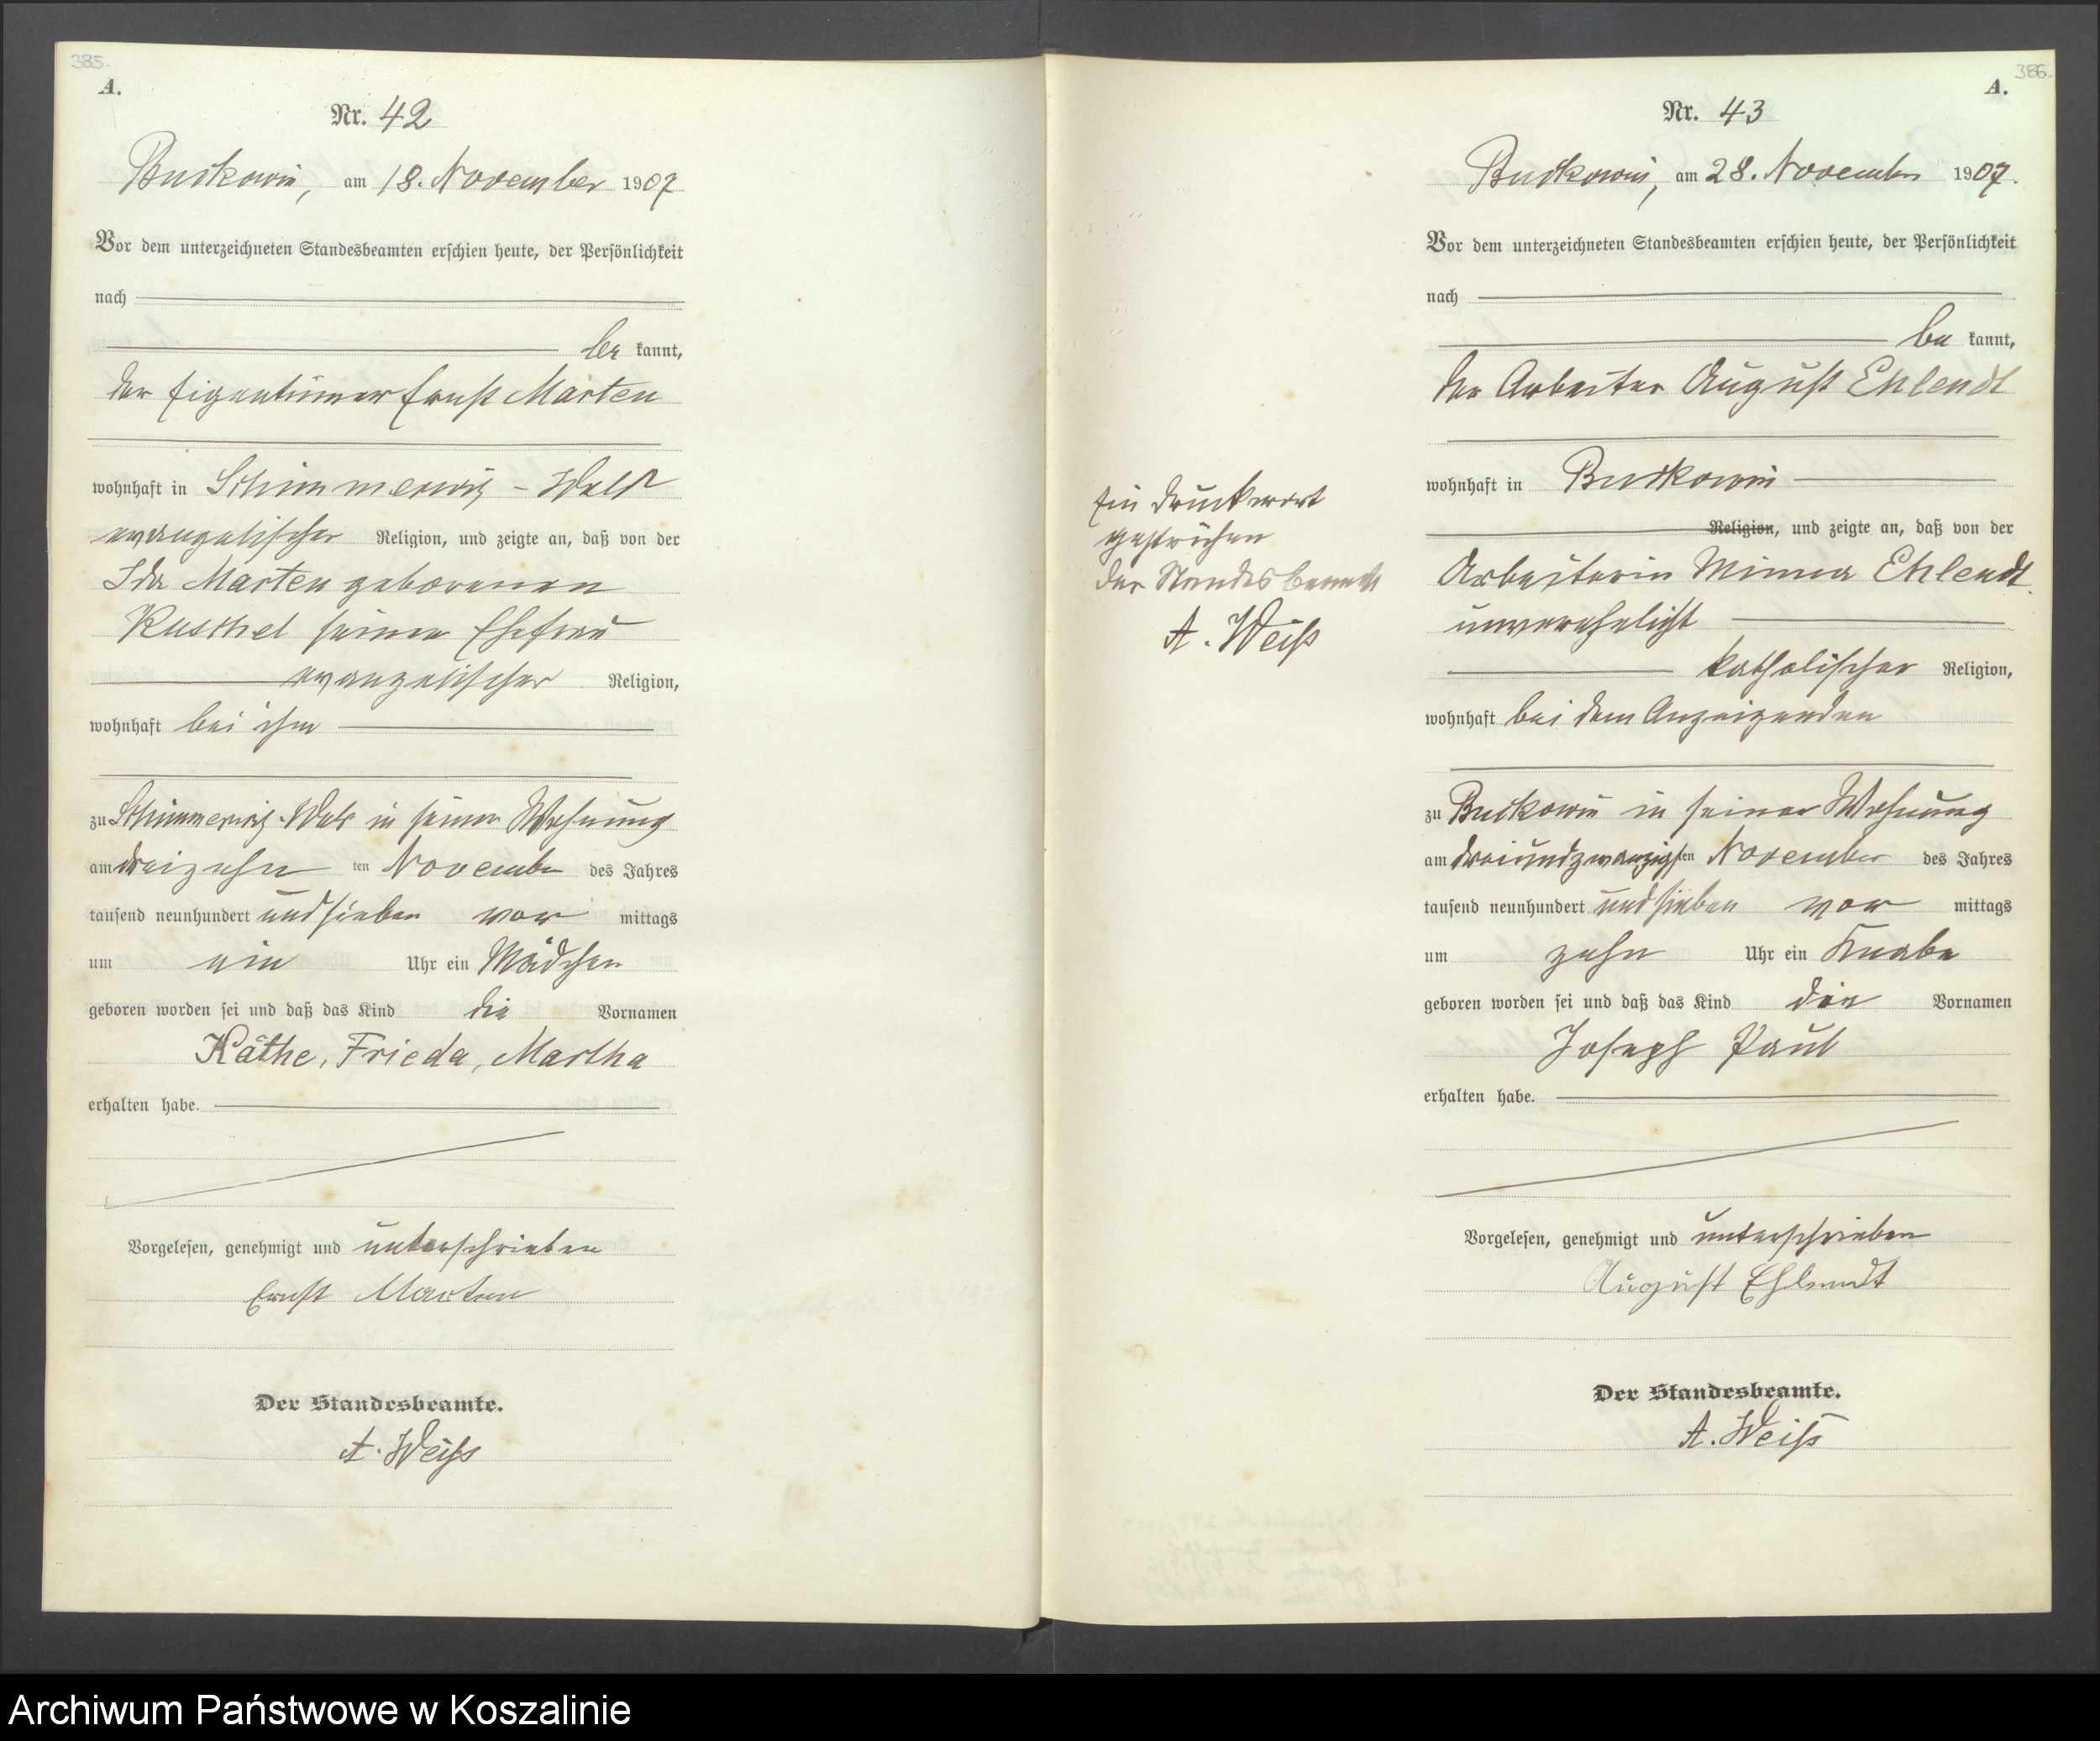 385.
A.
Nr. 42
Buckowin, am 18. November 1907
Vor dem unterzeichneten Standesbeamten erschien heute, der Persönlichkeit
nach
be kannt,
der Eigentümer Ernst Marten
wohnhaft in Schimmerwitz-Wald
evangelischer Religion, und zeigte an, daß von der
Ida Marten geborenen
Kuschel seiner Ehefrau
evangelischer Religion,
wohnhaft bei ihm
zu Schimmerwitz-Wald in seiner Wohnung
am dreizehn ten November des Jahres
tausend neunhundert und sieben vor mittags
um ein Uhr ein Mädchen
geboren worden sei und daß das Kind die Vornamen
Käthe, Frieda, Martha
erhalten habe.
Vorgelesen, genehmigt und unterschrieben
Ernst Marten
Der Standesbeamte.
A. Weiß
386.
A.
Nr. 43
Buckowin, am 28. November 1907.
Vor dem unterzeichneten Standesbeamten erschien heute, der Persönlichkeit
nach
be kannt,
der Arbeiter August Ehlendt
wohnhaft in Buckowin
Religion, und zeigte an, daß von der
Arbeiterin Minna Ehlendt
unverehelicht
katholischer Religion,
wohnhaft bei dem Anzeigenden
zu Buckowin in seiner Wohnung
am dreiundzwanzigsten November des Jahres
tausend neunhundert und sieben vor mittags
um zehn Uhr ein Knabe
geboren worden sei und daß das Kind die Vornamen
Joseph Paul
erhalten habe.
Vorgelesen, genehmigt und unterschrieben
August Ehlendt
Der Standesbeamte.
A. Weiß
Ein Druckwort
gestrichen
Der Standesbeamte
A. Weiß
Archiwum Państwowe w Koszalinie